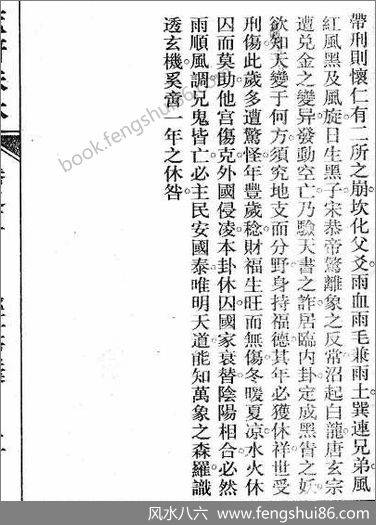 帶刑則懷仁有二所之崩坎化父爻雨血雨毛兼雨土巽連兄弟風
紅風黑及風旋日生黑子宋恭帝驚離象之反常沼起白龍唐玄宗
遭兌金之變异發動空亡乃驗天書之詐居臨内卦定成黑眚之妖
欲知天變于何方須究地支而分野身持福德其年必獲休祥世受
刑傷此歲多遭驚怪年豐歲稔財福生旺而無傷冬暖夏凉水火休
囚而莫助他宮傷克外國侵凌本卦休囚國家衰替陰陽相合必然
雨順風調兄鬼皆亡必主民安國泰唯明天道能知萬象之森羅識
透玄機奚啻一年之休咎
book.fengshui86.com
风水八六 www.fengshui86.com